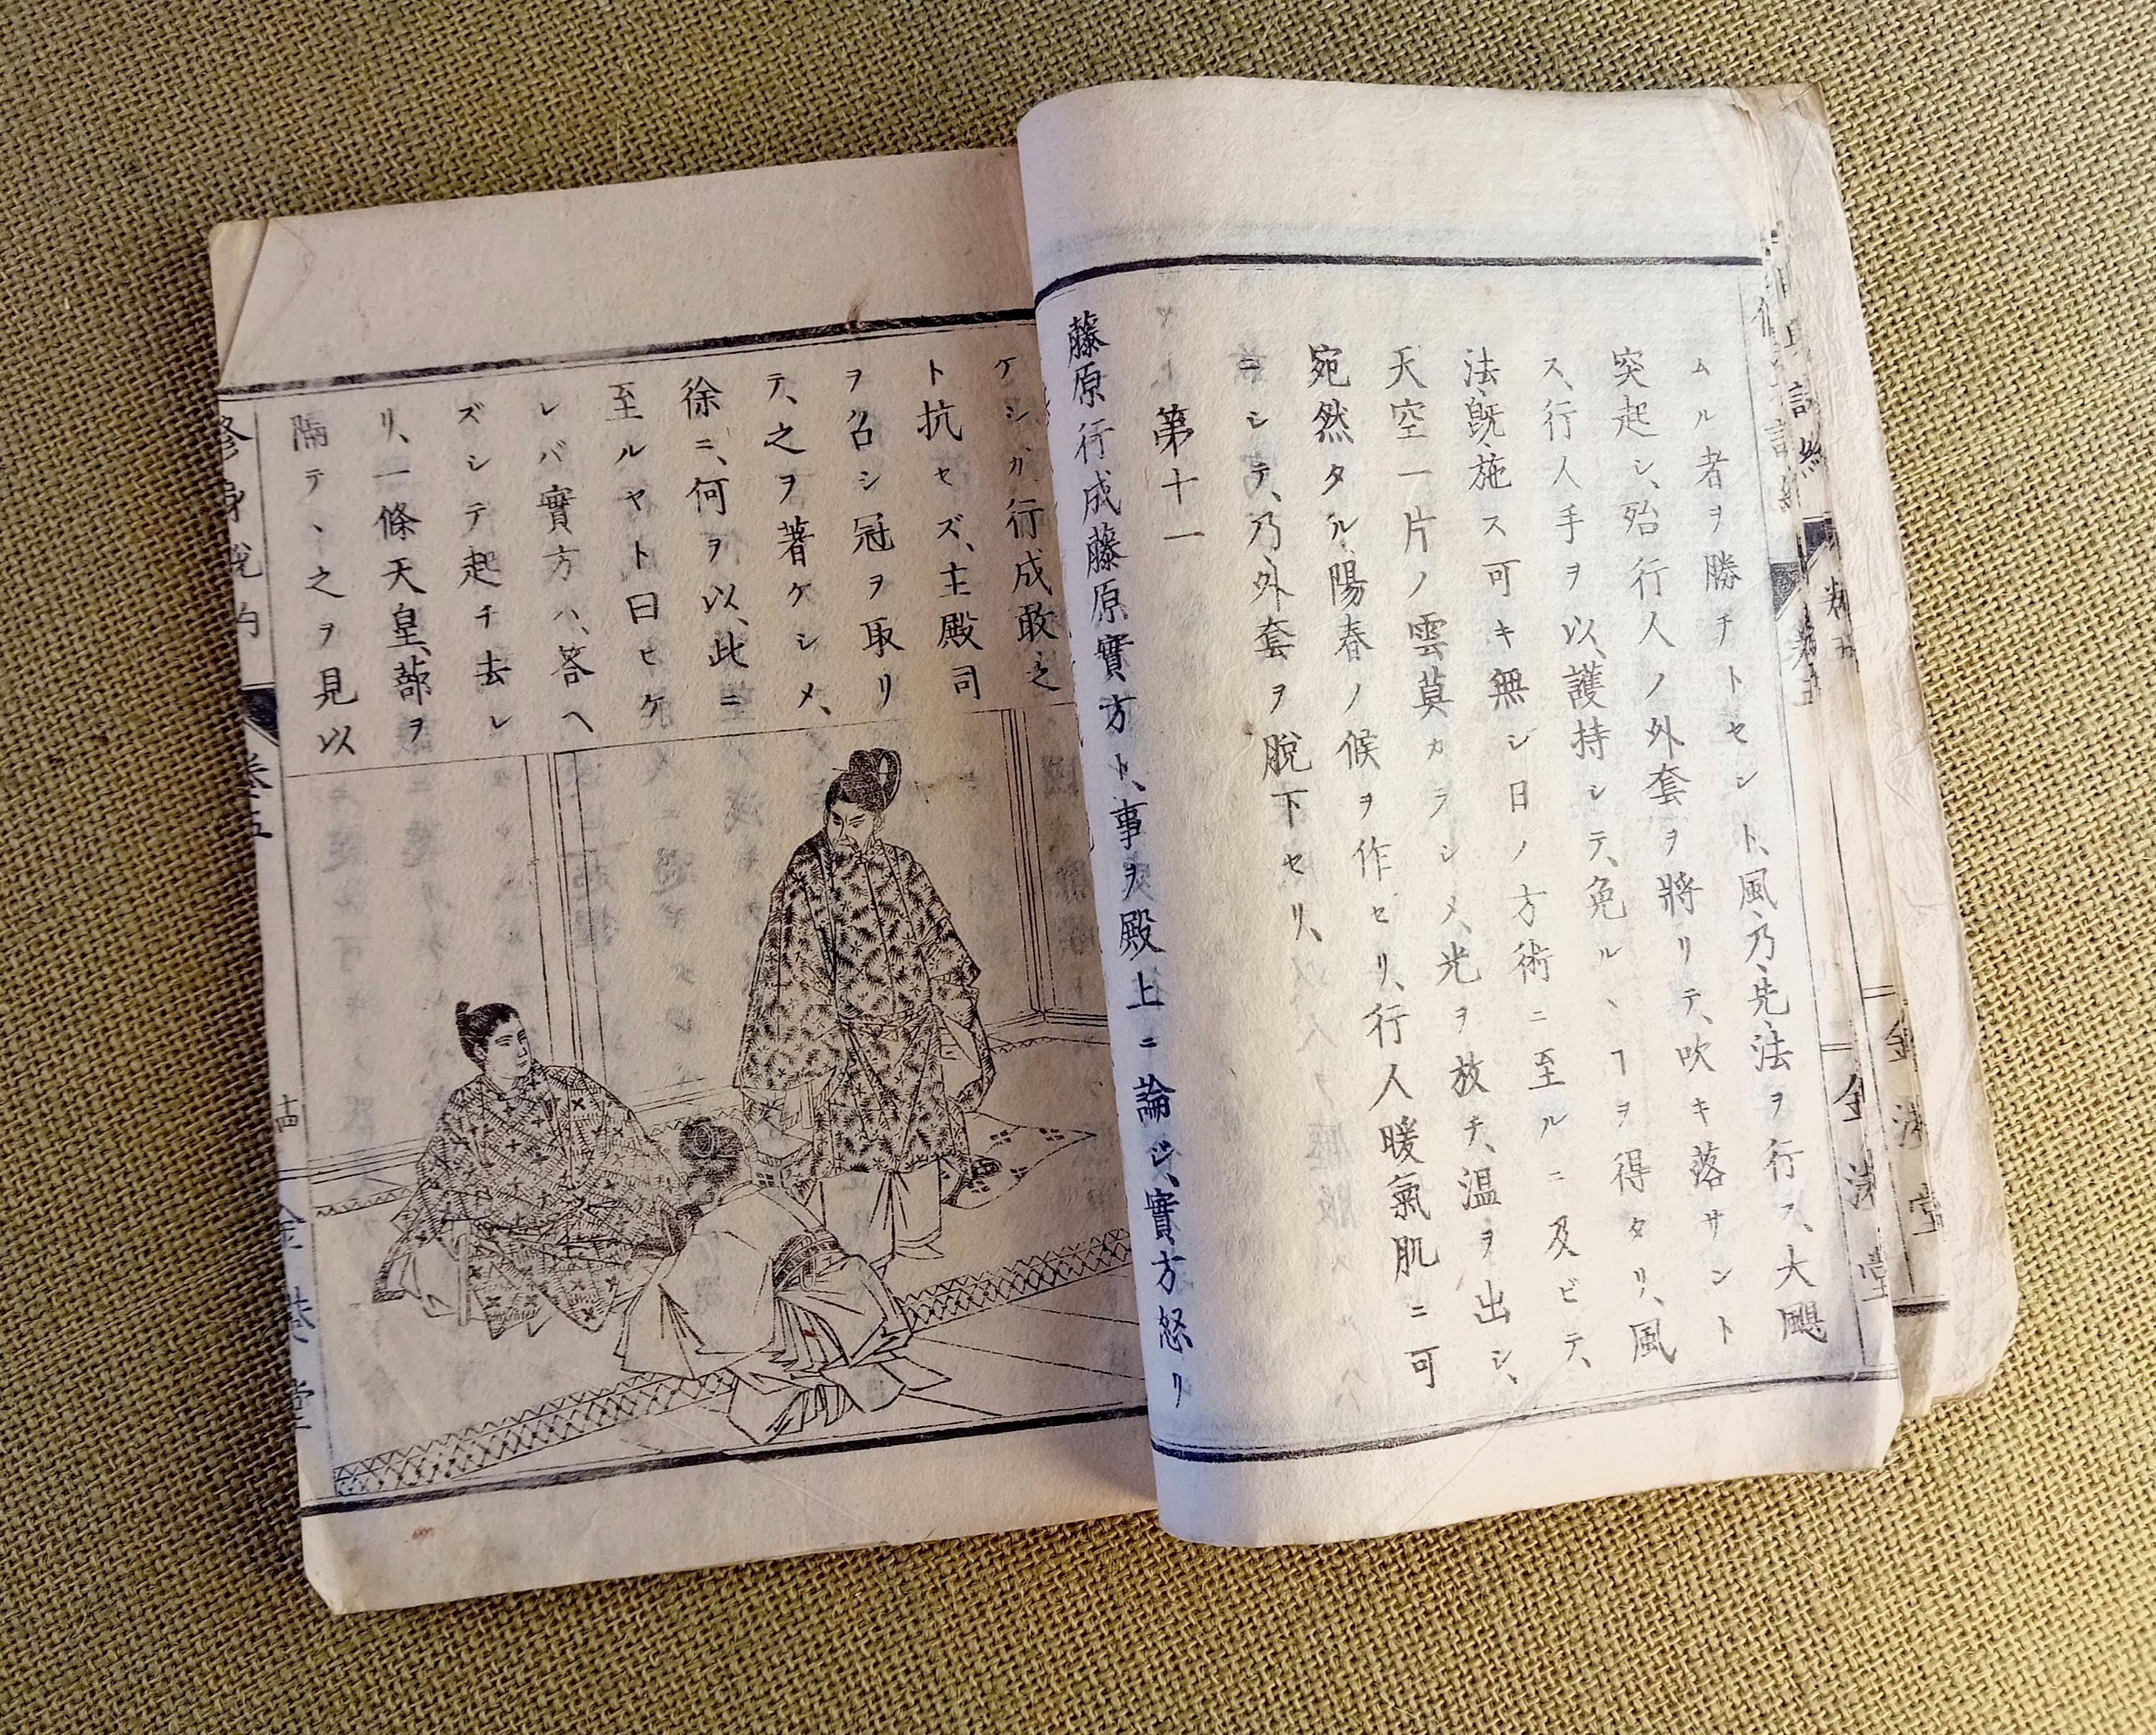 ムル者ヲ勝チトセント、風乃先法ヲ行フ、大颶
突起シ、殆行人ノ外套ヲ將リテ、吹キ落サント
ス、行人手ヲ以、護持シテ、免ルヽヿヲ得タリ、風
法既施ス可キ無シ日ノ方術ニ至ルニ及ビテ、
天空一片ノ雲莫カラシメ、光ヲ放チ、温ヲ出シ、
宛然タル陽春ノ候ヲ作セリ、行人暖氣肌ニ可
ニシテ、乃外套ヲ脱下セリ、
第十一
藤原行成藤原實方ト、事ヲ殿上ニ論ジ、實方怒リ
ケシガ行成敢之
ト抗セズ、主殿司
ヲ召シ冠ヲ取リ
テ、之ヲ著ケシメ、
徐ニ、何ヲ以、此ニ
至ルヤト曰ヒケ
レバ實方ハ、答ヘ
ズシテ起チ去レ
リ、一條天皇、蔀ヲ
隔テヽ之ヲ見以
卷五
金港堂
金港堂
金港堂